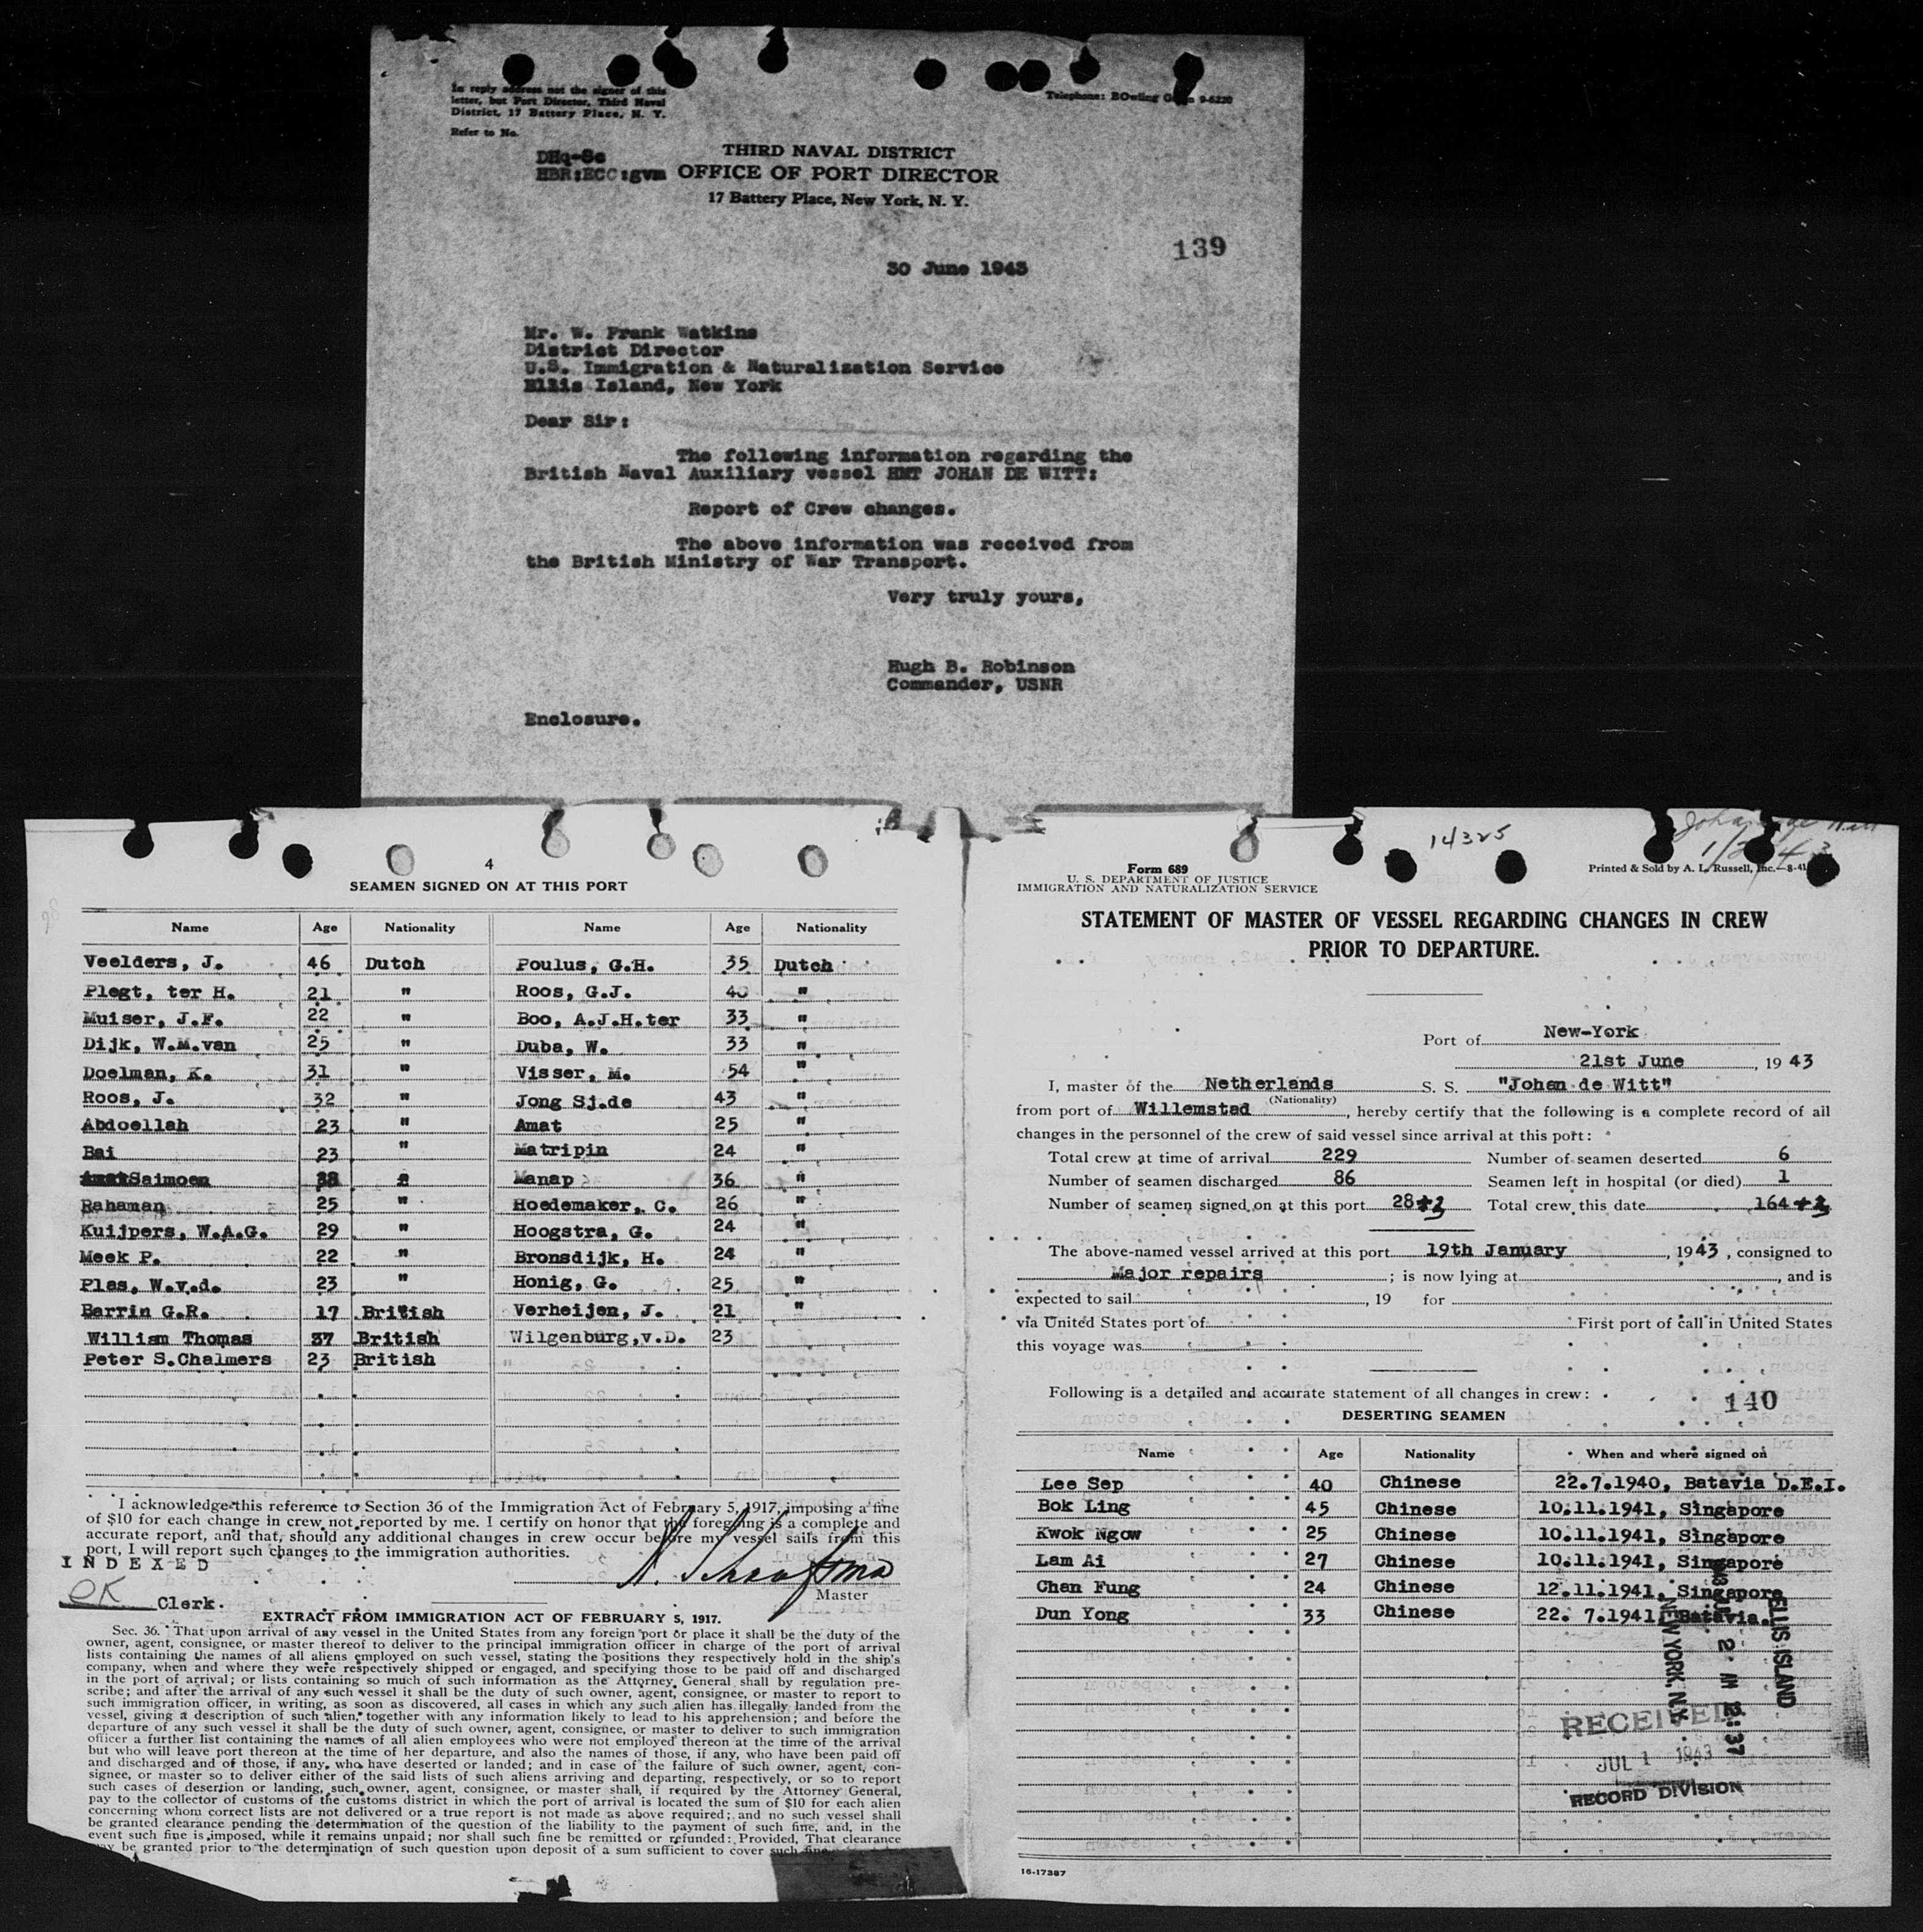 In reply address not the signer of this
letter, but Port Director, Third Naval
District, 17 Battery Place, N. Y.
Refer to No.
Telephone: BOwling Green 9-6220
DHq-8c
HBR:ECC:gvm
THIRD NAVAL DISTRICT
OFFICE OF PORT DIRECTOR
17 Battery Place, New York, N. Y.
139
30 June 1943
Mr. W. Frank Watkins
District Director
U.S. Immigration & Naturalization Service
Ellis Island, New York
Dear Sir:
The following information regarding the
British Naval Auxiliary vessel HMT JOHAN DE WITT:
Report of Crew changes.
The above information was received from
the British Ministry of War Transport.
Very truly yours,
Hugh B. Robinson
Commander, USNR
Enclosure.
4
SEAMEN SIGNED ON AT THIS PORT
Name Age Nationality Name Age Nationality
Veelders, J. 46 Dutch Poulus, G.H. 35 Dutch
Plegt, ter H. 21 " Roos, G.J. 40 "
Muiser, J.F. 22 " Boo, A.J.H.ter 33 "
Dijk, W.M.van 25 " Duba, W. 33 "
Doelman, K. 31 " Visser, M. 54 "
Roos, J. 32 " Jong Sj.de 43 "
Abdoellah 23 " Amat 25 "
Bai 23 " Matripin 24 "
Saimoen " Manap 36 "
Rahaman 25 " Hoedemaker, C. 26 "
Kuijpers, W.A.G. 29 " Hoogstra, G. 24 "
Meek P. 22 " Bronsdijk, H. 24 "
Plas, W.v.d. 23 " Honig, G. 25 "
Barrin G.R. 17 British Verheijen, J. 21 "
William Thomas 37 British Wilgenburg,v.D. 23
Peter S.Chalmers 23 British
I acknowledge this reference to Section 36 of the Immigration Act of February 5, 1917, imposing a fine
of $10 for each change in crew not reported by me. I certify on honor that the foregoing is a complete and
accurate report, and that, should any additional changes in crew occur before my vessel sails from this
port, I will report such changes to the immigration authorities.
INDEXED
OK Clerk.
Master
EXTRACT FROM IMMIGRATION ACT OF FEBRUARY 5, 1917.
Sec. 36. That upon arrival of any vessel in the United States from any foreign port or place it shall be the duty of the
owner, agent, consignee, or master thereof to deliver to the principal immigration officer in charge of the port of arrival
lists containing the names of all aliens employed on such vessel, stating the positions they respectively hold in the ship's
company, when and where they were respectively shipped or engaged, and specifying those to be paid off and discharged
in the port of arrival; or lists containing so much of such information as the Attorney General shall by regulation pre-
scribe; and after the arrival of any such vessel it shall be the duty of such owner, agent, consignee, or master to report to
such immigration officer, in writing, as soon as discovered, all cases in which any such alien has illegally landed from the
vessel, giving a description of such alien, together with any information likely to lead to his apprehension; and before the
departure of any such vessel it shall be the duty of such owner, agent, consignee, or master to deliver to such immigration
officer a further list containing the names of all alien employees who were not employed thereon at the time of the arrival
but who will leave port thereon at the time of her departure, and also the names of those, if any, who have been paid off
and discharged and of those, if any, who have deserted or landed; and in case of the failure of such owner, agent, con-
signee, or master so to deliver either of the said lists of such aliens arriving and departing, respectively, or so to report
such cases of desertion or landing, such owner, agent, consignee, or master shall, if required by the Attorney General,
pay to the collector of customs of the customs district in which the port of arrival is located the sum of $10 for each alien
concerning whom correct lists are not delivered or a true report is not made as above required; and no such vessel shall
be granted clearance pending the determination of the question of the liability to the payment of such fine, and, in the
event such fine is imposed, while it remains unpaid; nor shall such fine be remitted or refunded: Provided, That clearance
may be granted prior to the determination of such question upon deposit of a sum sufficient to cover such fine
14325
Johan de Witt
Form 689
U. S. DEPARTMENT OF JUSTICE
IMMIGRATION AND NATURALIZATION SERVICE
Printed & Sold by A. L. Russell, Inc.—8-41
STATEMENT OF MASTER OF VESSEL REGARDING CHANGES IN CREW
PRIOR TO DEPARTURE.
Port of New-York
21st June, 1943
I, master of the Netherlands S. S. "Johan de Witt"
(Nationality)
from port of Willemsted, hereby certify that the following is a complete record of all
changes in the personnel of the crew of said vessel since arrival at this port:
Total crew at time of arrival 229 Number of seamen deserted 6
Number of seamen discharged 86 Seamen left in hospital (or died) 1
Number of seamen signed on at this port 28+3 Total crew this date 164+3
The above-named vessel arrived at this port 19th January, 1943, consigned to
Major repairs; is now lying at , and is
expected to sail , 19 for
via United States port of First port of call in United States
this voyage was
Following is a detailed and accurate statement of all changes in crew:
140
DESERTING SEAMEN
Name Age Nationality When and where signed on
Lee Sep 40 Chinese 22.7.1940, Batavia D.E.I.
Bok Ling 45 Chinese 10.11.1941, Singapore
Kwok Ngow 25 Chinese 10.11.1941, Singapore
Lam Ai 27 Chinese 10.11.1941, Singapore
Chan Fung 24 Chinese 12.11.1941, Singapore
Dun Yong 33 Chinese 22. 7.1941, Batavia.
ELLIS ISLAND
2 12:37
NEW YORK, N.Y.
RECEIVED
JUL 1 1943
RECORD DIVISION
16-17387